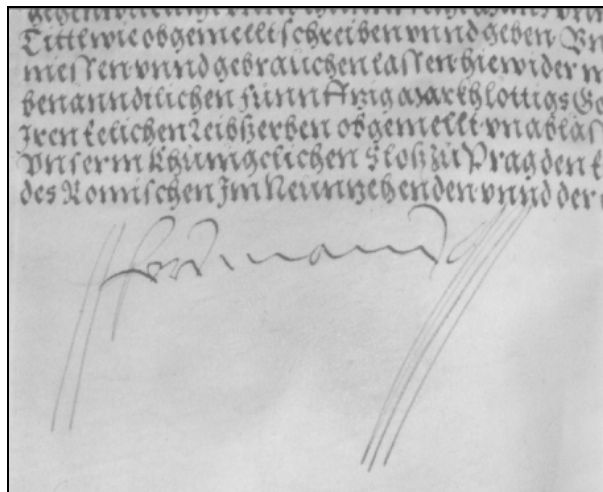 Tittl wie obgemellt schreiben vnnd geben
messen vnnd gebrauchen lassen hiewider
benanndtlichen funnftzig marckh lottigs
Iren Eelichen Leibszerben obgemellt vnablas
Vnserm Khunigclichen Sloss zu Prag den
des Romischen Im Neunzehenden vnnd der
Ferdinand